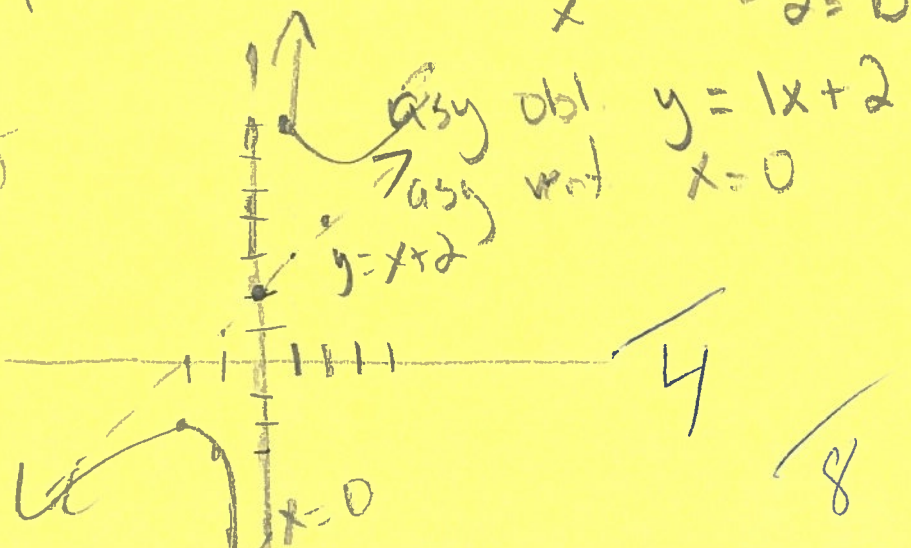 x -2=0
asy obl. y = 1x + 2
asy vert x=0
y=x+2
4
x=0
8